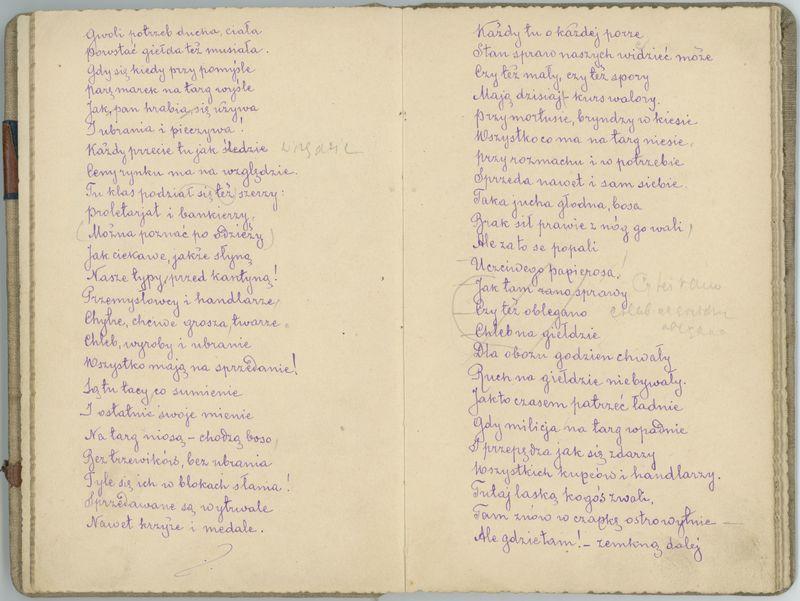 Gwoli potrzeb ducha, ciała
Powstać giełda też musiała.
Gdy się kiedy przy pomyśle
parę marek na targ wyśle
Jak, pan hrabia, się używa
I ubrania i pieczywa!
Każdy przecie tu jak śledzie
Ceny rynku ma na względzie.
Tu klas podział się też szerzy:
Proletarjat i bankierzy,
(Można poznać po odzieży)
Jak ciekawe, jakże słyną
Nasze typy, przed kantyną!
Przemysłowcy i handlarze,
Chytre, chciwe grosza twarze.
Chleb, wyroby i ubranie
Wszystko mają na sprzedanie!
Są tu tacy co sumienie
I ostatnie swoje mienie
Na targ niosą – chodzą boso,
Bez trzewików, bez ubrania
Tyle się ich w blokach słania!
Sprzedawane są wytrwale
Nawet krzyże i medale.
Każdy tu o każdej porze
Stan spraw naszych widzieć może
Czy też mały, czy też spory
Mają dzisiaj – kurs walory.
Przy mortusie, bryndzy w kiesie
Wszystko co ma na targ niesie,
przy rozmachu i w potrzebie
Sprzeda nawet i sam siebie.
Taka jucha głodna, bosa
Brak sił prawie z nóg go wali,
Ale zato se popali
Uczciwego papierosa!
Jak tam rano sprawy
Czy też oblegano
Chleb na giełdzie
Dla obozu godzien chwały
Ruch na giełdzie niebywały.
Jak to czasem patrzeć ładnie
Gdy milicja na targ wpadnie
I przepędza jak się zdarzy
Wszystkich kupców i handlarzy.
Tutaj laską kogoś zwali,
Tam znów w czapkę ostro wytnie —
Ale gdzie tam! – zemkną dalej